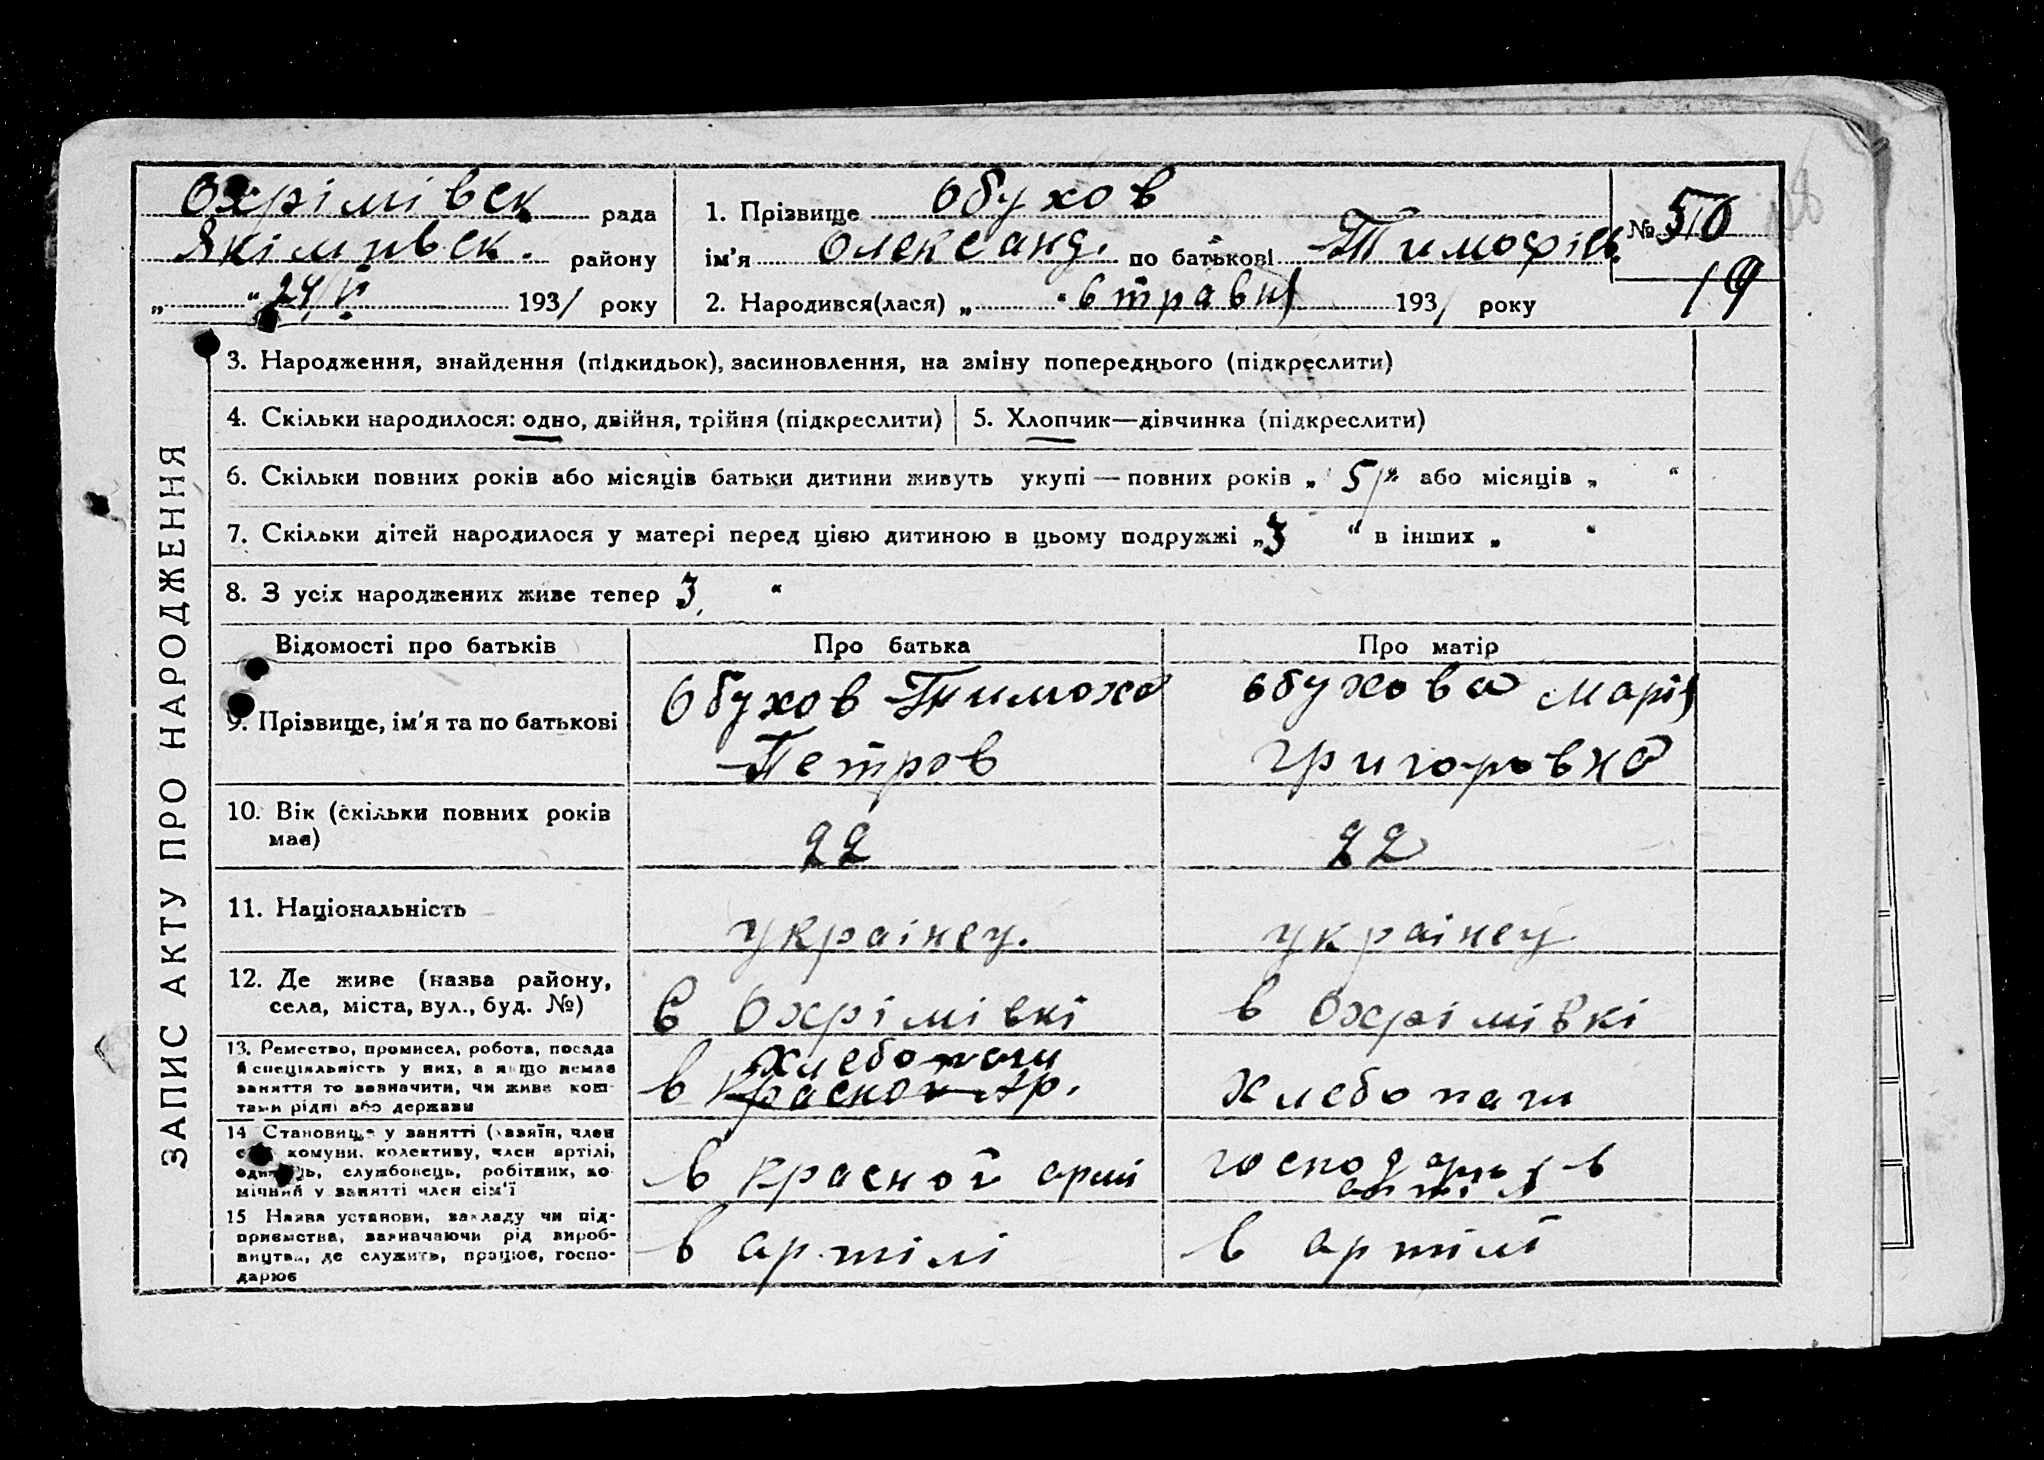 Охрімівск рада
Якімивск. району
„ “ 24/V 1931 року
1. Прізвище Обухов
ім'я Олександ. по батькові Тимофіів.
2. Народився(лася) „ “ 6 травня 1931 року
№ 50
19
ЗАПИС АКТУ ПРО НАРОДЖЕННЯ
3. Народження, знайдення (підкидьок), засиновлення, на зміну попереднього (підкреслити)
4. Скільки народилося: одно, двійня, трійня (підкреслити)
5. Хлопчик—дівчинка (підкреслити)
6. Скільки повних років або місяців батьки дитини живуть укупі — повних років „ 5 “ або місяців „ “
7. Скільки дітей народилося у матері перед цією дитиною в цьому подружжі „3 “ в інших „ “
8. З усіх народжених живе тепер 3 “
Відомості про батьків
Про батька
Про матір
9. Прізвище, ім'я та по батькові
Обухов Тимоха
Петров
Обухова Марія
Григоровна
10. Вік (скільки повних років
має)
22
22
11. Національність
украінец.
украінец
12. Де живе (назва району,
села, міста, вул., буд. №)
в Охрімівкі
в Охрімівкі
13. Ремество, промисел, робота, посада
й спеціяльність у них, а якщо немає
заняття то зазначити, чи живе кош-
тами рідні або держави
хлебопаш
в Красной Ар.
хлебопаш
14 Становище у занятті (хазяїн, член
комуни, колективу, член артілі,
службовець, робітник, по-
мічний у занятті член сім'ї
в красной армії
господар в
15 Назва установи, закладу чи під-
приємства, зазначаючи рід вироб-
ництва, де служить, працює, госпо-
дарює
в артілі
в артілі